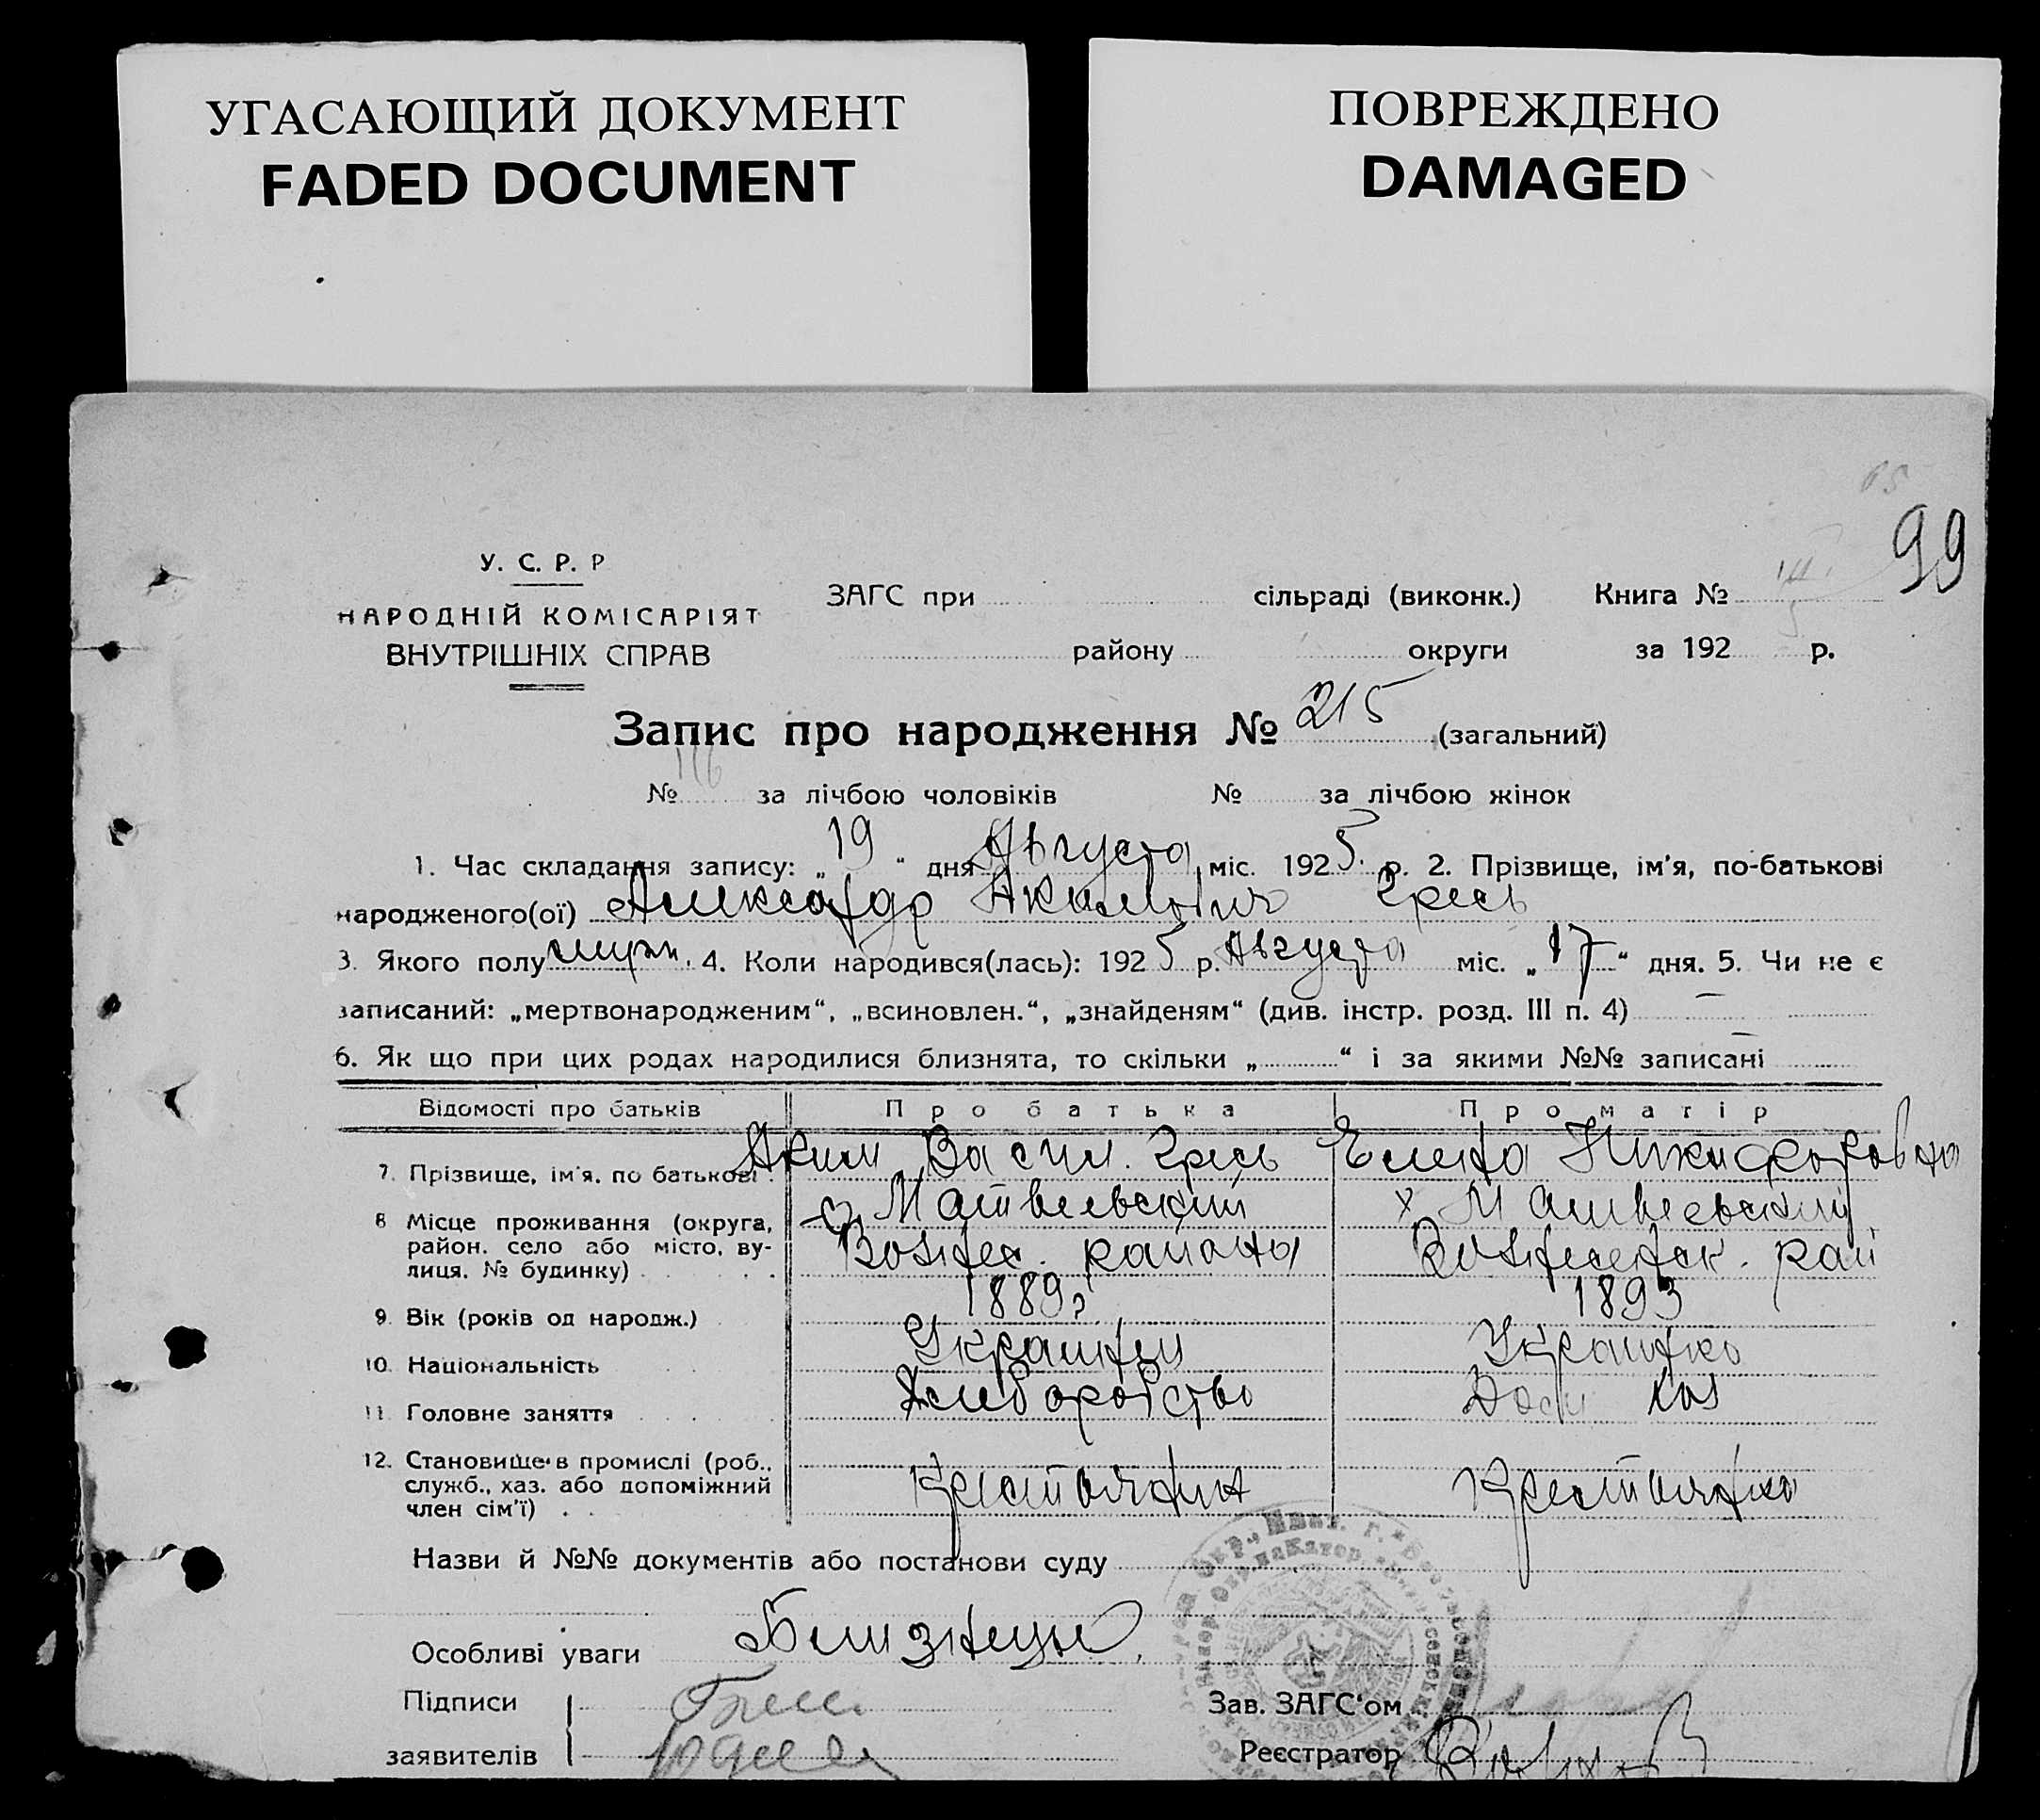 УГАСАЮЩИЙ ДОКУМЕНТ
FADED DOCUMENT
ПОВРЕЖДЕНО
DAMAGED
99
У. С. Р. Р
НАРОДНІЙ КОМІСАРІЯТ
ВНУТРІШНІХ СПРАВ
ЗАГС при сільраді (виконк.) Книга №
району округи за 192 р.
Запис про народження № 215 (загальний)
№ 116 за лічбою чоловіків № за лічбою жінок
1. Час складання запису: „19“ дня Августа міс. 1925 р. 2. Прізвище, ім'я, по-батькові
народженого(ої) Александр Акимович Гресь
3. Якого полу мужч. 4. Коли народився(лась): 1925 р. Августа міс. „17“ дня. 5. Чи не є
записаний: „мертвонародженим“, „всиновлен.“, „знайденям“ (див. інстр. розд. III п. 4) —
6. Як що при цих родах народилися близнята, то скільки „ “ і за якими №№ записані —
Відомості про батьків Про батька Про матір
7. Прізвище, ім'я, по батькові Аким Васил. Гресь Елена Никифоровна
8 Місце проживання (округа, район, село або місто, вулиця, № будинку) х. Матвеевский Вознес. района х Матвеевский Вознесенск. рай
9. Вік (років од народж.) 1889 г 1893
10. Національність Украинец Украинка
11. Головне заняття Хлеборобство Дом хоз
12. Становище в промислі (роб., служб., хаз. або допоміжний член сім'ї) Крестьянин Крестьянка
Назви й №№ документів або постанови суду
Особливі уваги Близнецы
Підписи
заявителів
Зав. ЗАГС'ом
Реєстратор